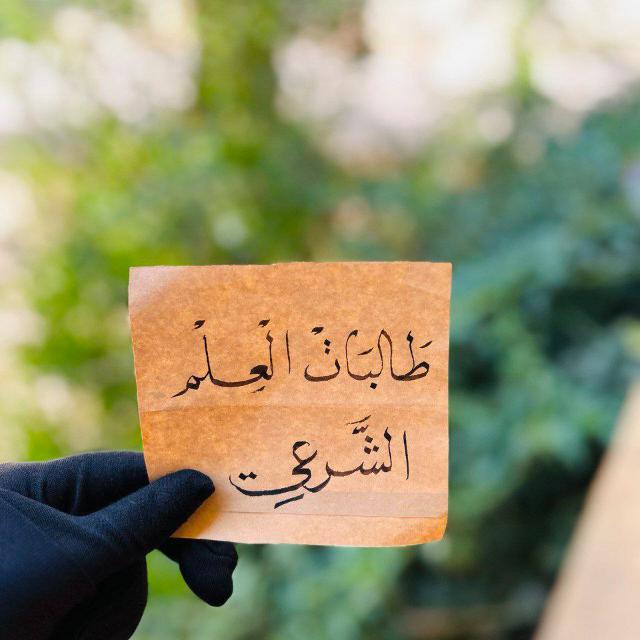 طَالِبَاتْ الْعِلْم
الشَّرعِي